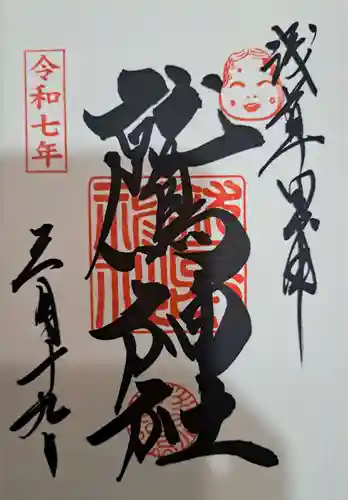 浅草田甫
鷲神社
令和七年
三月十九日